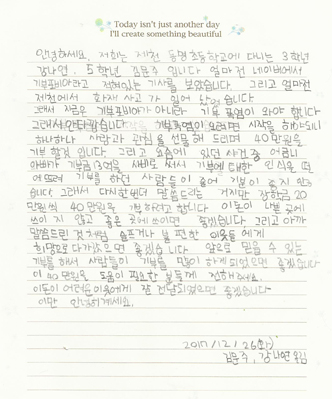 Today isn't just another day
I'll create something beautiful
안녕하세요. 저희는 제천 동명초등학교에 다니는 3학년
강나연, 5학년 김문주 입니다 얼마전 네이버에서
기부포비아라고 적혀있는 기사를 보았습니다. 그리고 얼마전
제천에서 화재 사고가 있어 났었습니다
그래서 지금은 기부포비아가 아니라 기부 폭염이 와야 합니다
그래서 안타깝습니다 기부폭염이 오려면 시작을 해야되니
하나하나 사람과 관심을 선물해 드리며 40만원을
기부 할것 입니다 그리고 요즘에 있던 사건 중 어금니
아빠가 기부금 3억을 사비로 써서 기부에 대한 인식을 떄
어뜨려 기부를 하던 사람들이 줄어 기부가 좋지 안
습니다. 그래서 대단한일던 말씀드리는 거지만 장학금 20
만원씩 40만원을 기부하려고 합니다 이돈이 나쁜 곳에
쓰이지 않고 좋은 곳에 쓰이면 좋겠습니다 그리고 아까
말씀드린 것처럼 슬프거나 불편한 이웃들에게
희망으로 다가갔으면 좋겠습니다 앞으로 믿을 수 있는
기부를 해서 사람들이 기부를 많이 하게 되었으면 좋겠습니다
이 40만원을 도움이 필요한 분들께 전해주세요.
이돈이 어려운이웃에게 잘 전달되었으면 좋겠습니다
이만 안녕히계세요.
2017/12/26(화)
김문주, 강나연 올림